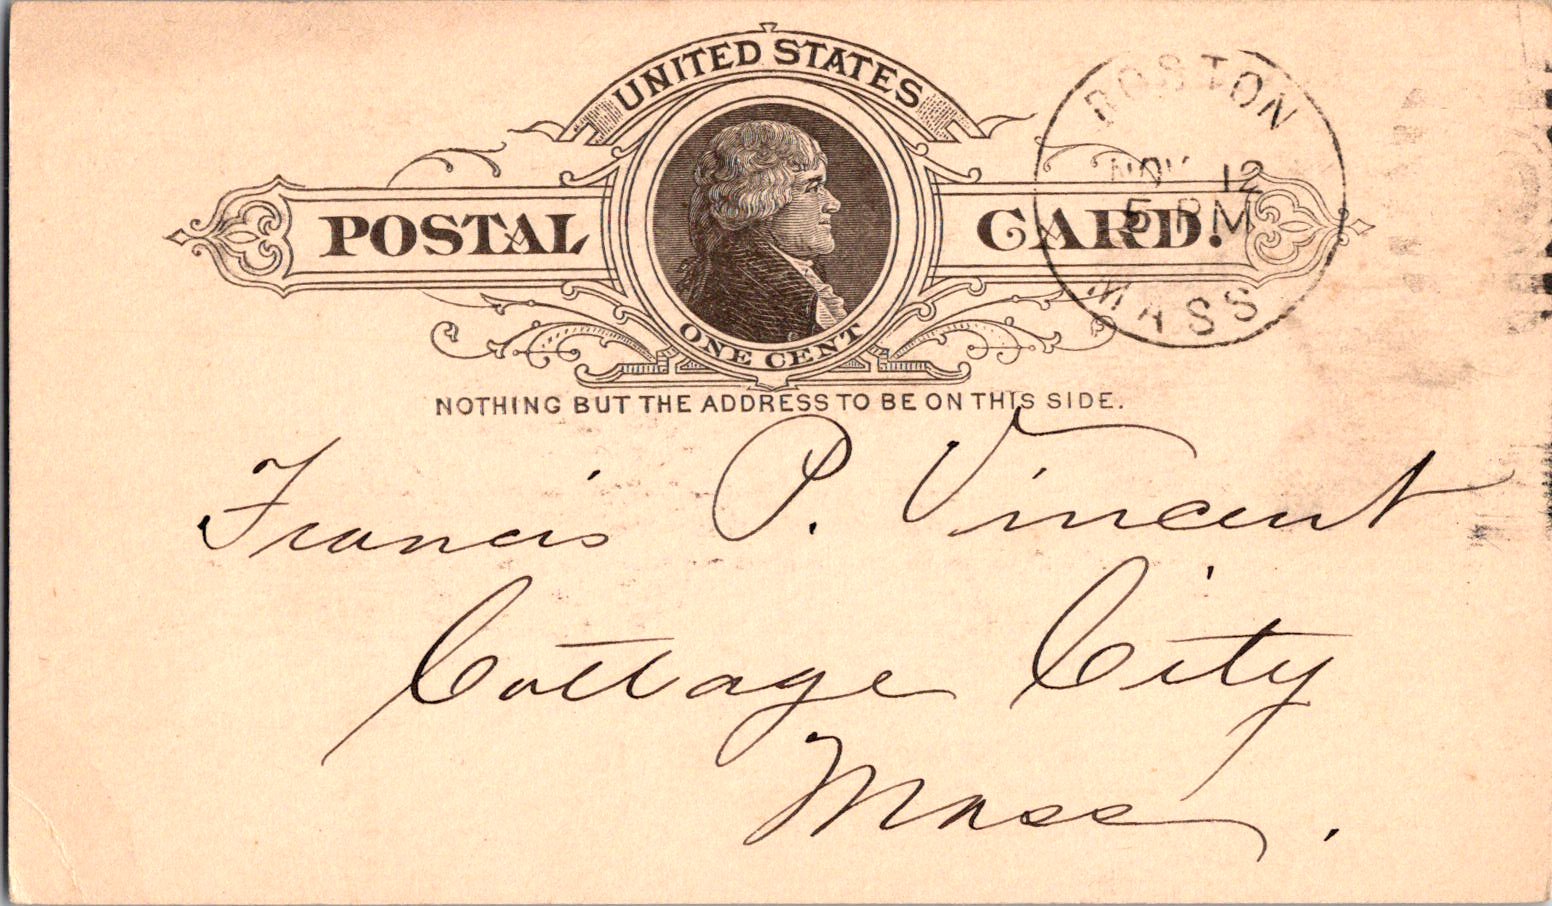 UNITED STATES
POSTAL CARD.
ONE CENT
NOTHING BUT THE ADDRESS TO BE ON THIS SIDE.
BOSTON
NOV 12
5 PM
MASS
Francis P. Vincent
Cottage City
Mass.